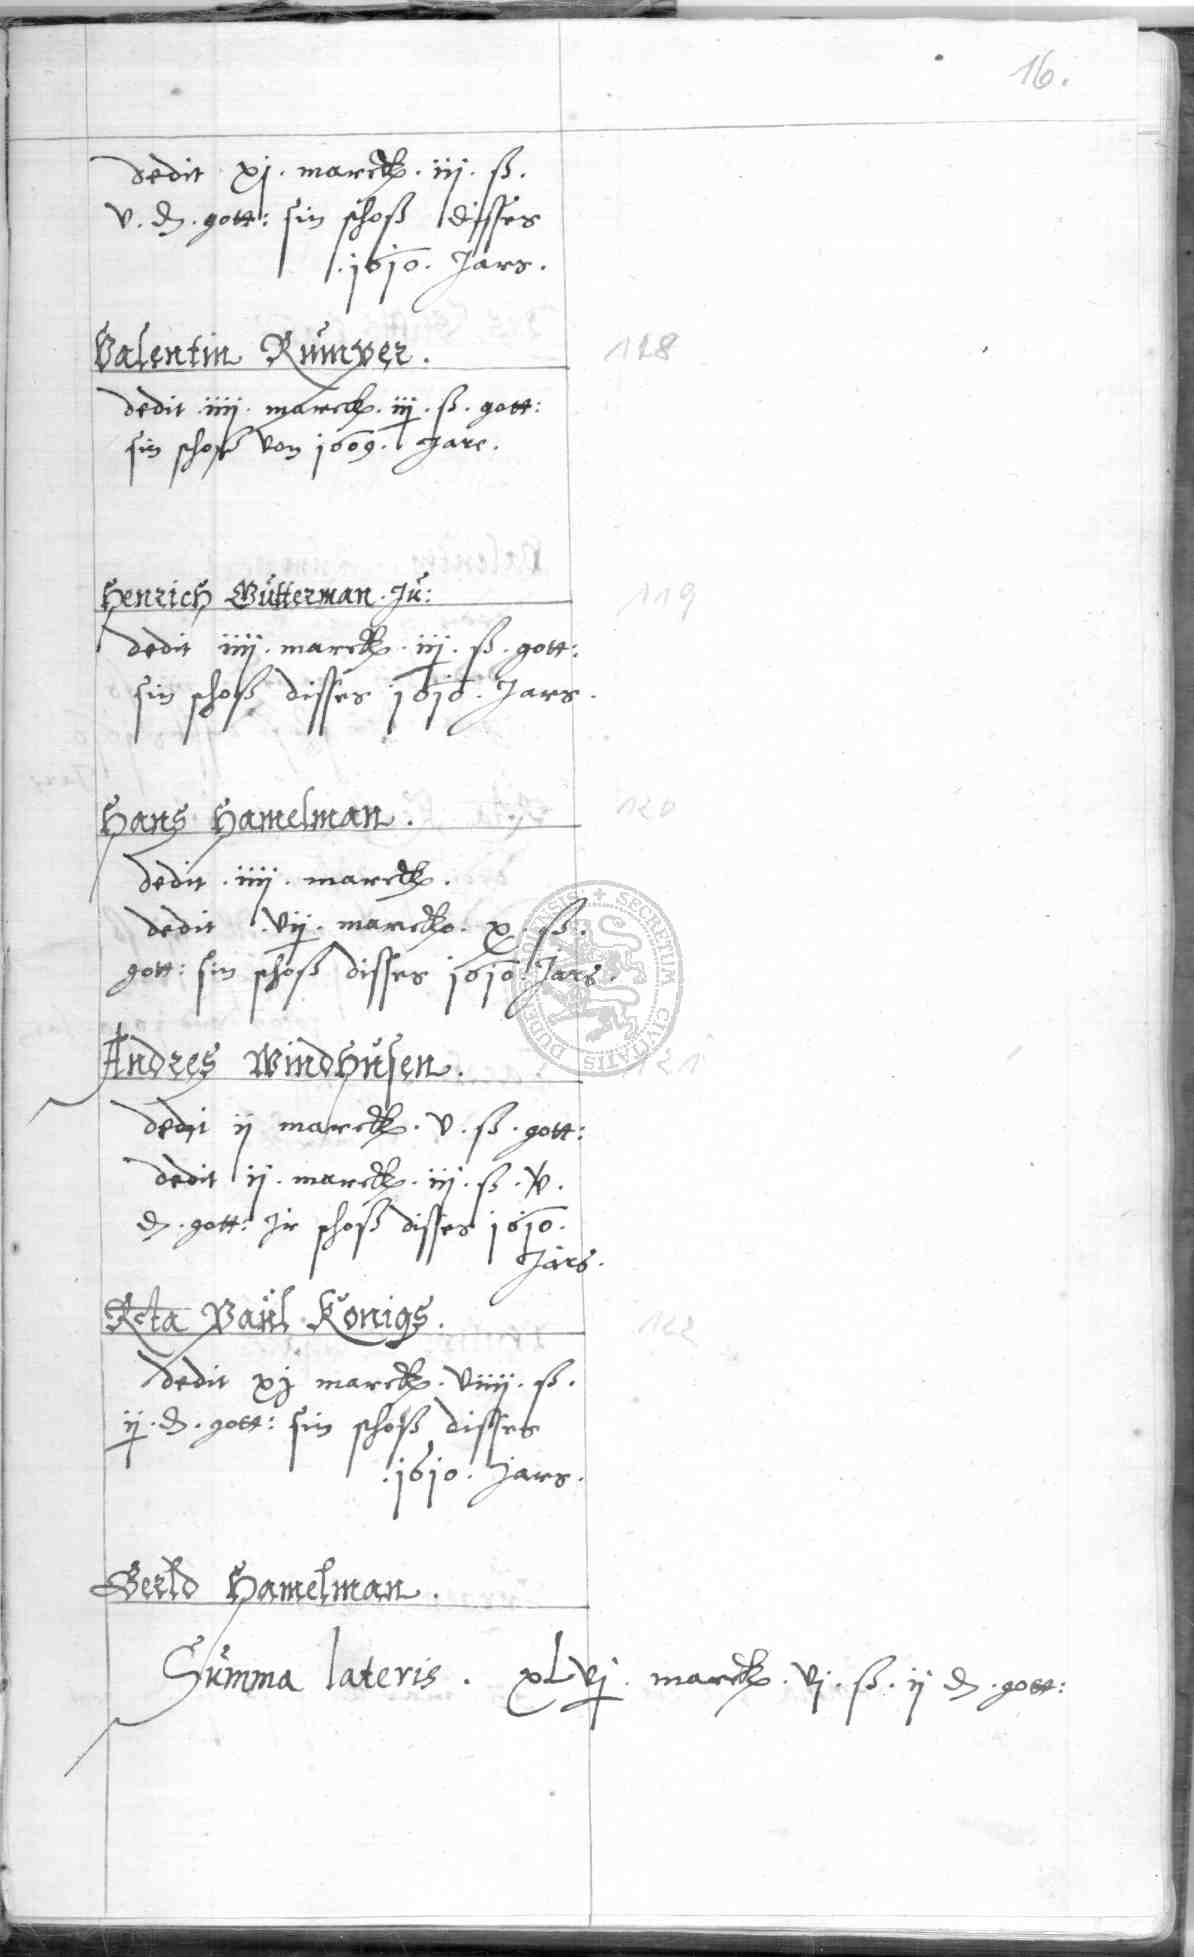 16.
dedit xj. marck. iij. ß.
v. d. gott: sin schoß disses
.1610. Jars.
Valentin Rümver. 118
dedit .iiij. marck. iij. ß. gott:
sin schoß von 1609. Jare.
Henrich Gütterman. Jü: 119
dedit iiij. marck. iij. ß. gott:
sin schoß disses 1610. Jars.
Hans Hamelman. 120
dedit .iiij. marck.
dedit .vij. marck. x. ß.
gott: sin schoß disses 1610. Jars.
Andres Windhüsen. 121
dedit ij marck. v. ß. gott:
dedit ij. marck. iij. ß. v.
d. gott: Jr schoß disses 1610.
Jars.
Rcta Paül Konigs. 122
dedit xj marck. viiij. ß.
ij. d. gott: sin schoß disses
.1610. Jars.
Gerld Hamelman.
Sümma lateris. xLvj. marck. vj. ß. ij d. gott:
SECRETUM CIVITATIS DUDERSTADENSIS